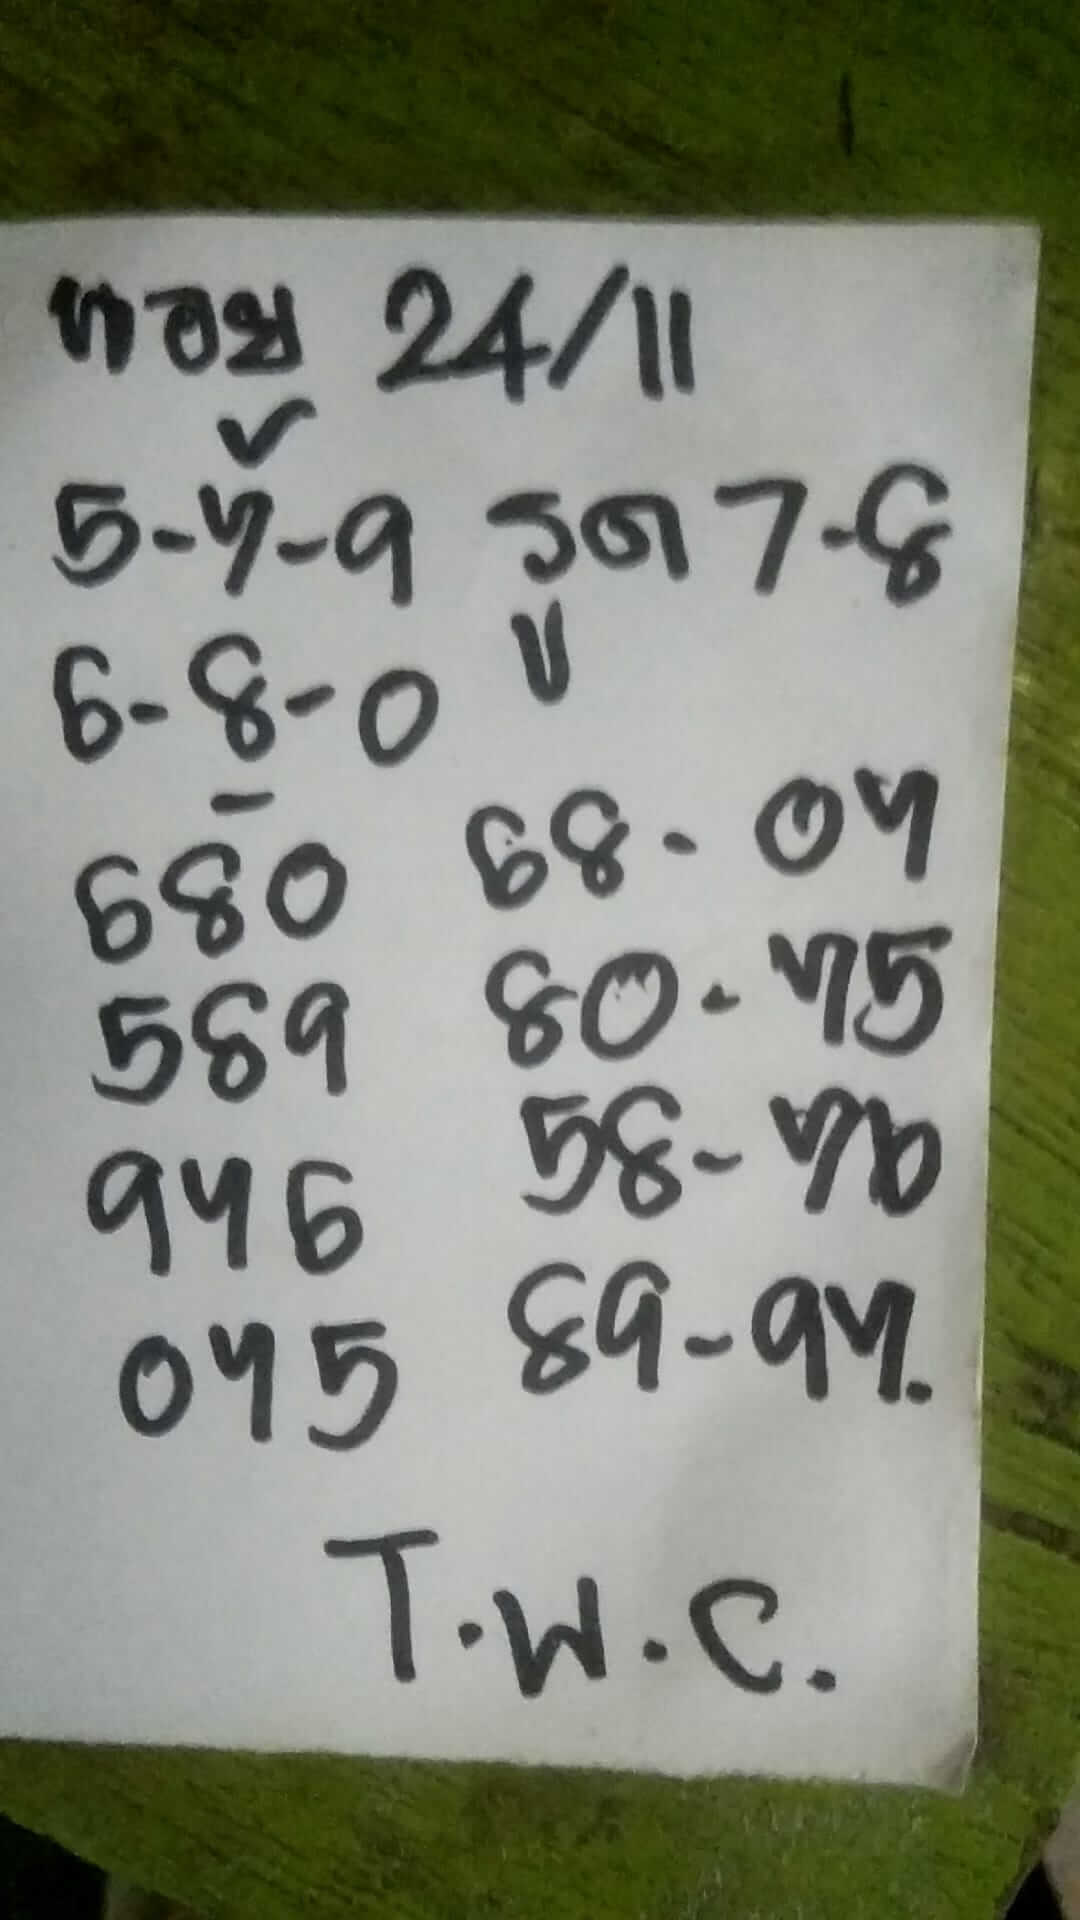 หอย 24/11
5-7-9 รูด 7-8
6-8-0
680 68-07
589 80-75
976 58-76
075 89-97.
T.W.C.